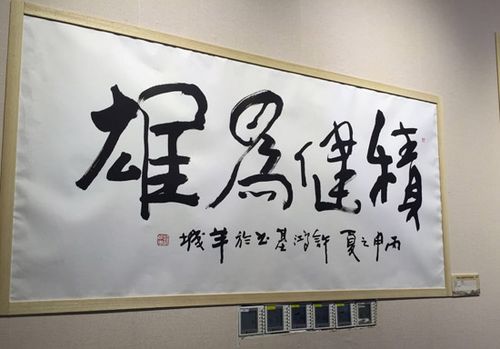 積健為雄
丙申之夏 許鴻基书於羊城